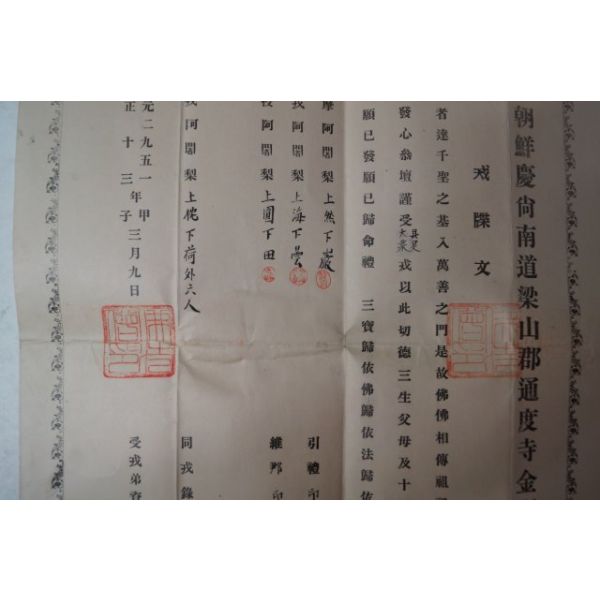 朝鮮慶尙南道梁山郡通度寺金
戒牒文
者達千聖之基入萬善之門是故佛佛相傳祖
發心叅壇謹受具足大乘戒以此功德三生父母及十
願已發願已歸命禮三寶歸依佛歸依法歸依
摩阿闍梨上然下巖
引禮印
阿闍梨上海下曇
阿闍梨上圓下田
維那印
阿闍梨上侊下荷外六人
同戒錄
元二九五一年甲子三月九日
正十三
受戒弟